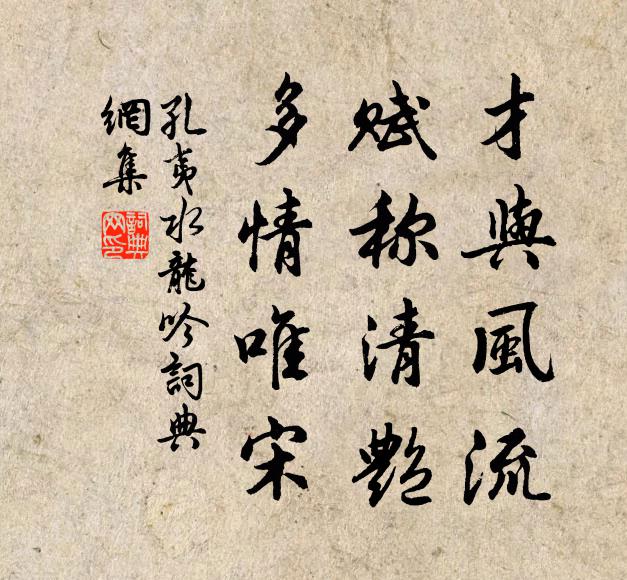 才與風流
賦称清艷
多情唯宋
孔夷水龍吟詞典
網集
詞典
网印